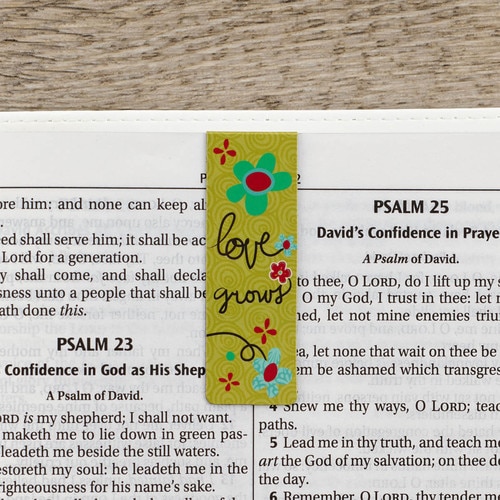 ore him: and none can keep
eed shall serve him; it shall be
Lord for a generation.
y shall come, and shall
sness unto a people that shall
ath done this.
PSALM 23
Confidence in God as His
A Psalm of David.
ORD is my shepherd; I shall not want.
maketh me to lie down in green pas-
leadeth me beside the still waters.
estoreth my soul: he leadeth me in the
righteousness for his name's sake.
love
grows
PSALM 25
David's Confidence in Prayer
A Psalm of David.
to thee, O LORD, do I lift up my
O my God, I trust in thee: let
med, let not mine enemies
ea, let none that wait on thee be
em be ashamed which
4 Shew me thy ways, O LORD;
paths.
5 Lead me in thy truth, and teach me
art the God of my salvation; on thee
the day.
6 Remember, O LORD, thy tender